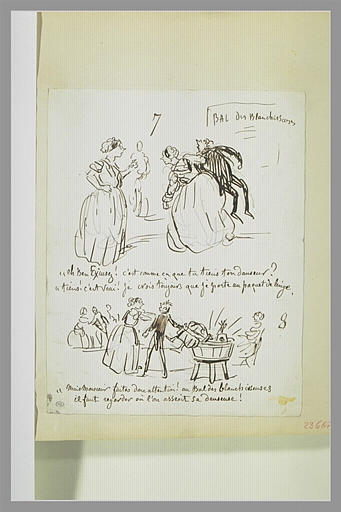 7
BAL des Blanchisseuses
"Oh ben Excusez! c'est comme ça que tu tiens ton danseur?
"tiens! c'est vrai! je crois toujours que je porte un paquet de linge.
8
"Mais Monsieur faites donc attention! au Bal des blanchisseuses
il faut regarder où l'on asseoit sa danseuse!